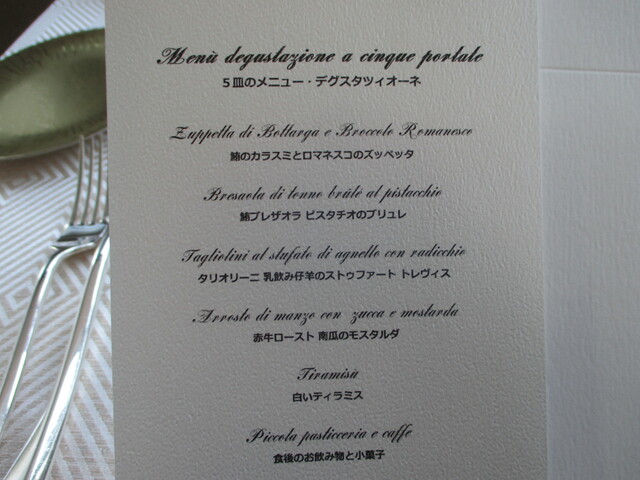 Menù degustazione a cinque portate
5皿のメニュー・デグスタツィオーネ
Zuppetta di Bottarga e Broccolo Romanesco
鮪のカラスミとロマネスコのズッペッタ
Bresaola di tonno brûle al pistacchio
鮪ブレザオラ ピスタチオのブリュレ
Tagliolini al stufato di agnello con radicchio
タリオリーニ 乳飲み仔羊のストゥファート トレヴィス
Arrosto di manzo con zucca e mostarda
赤牛ロースト 南瓜のモスタルダ
Tiramisù
白いティラミス
Piccola pasticceria e caffe
食後のお飲み物と小菓子